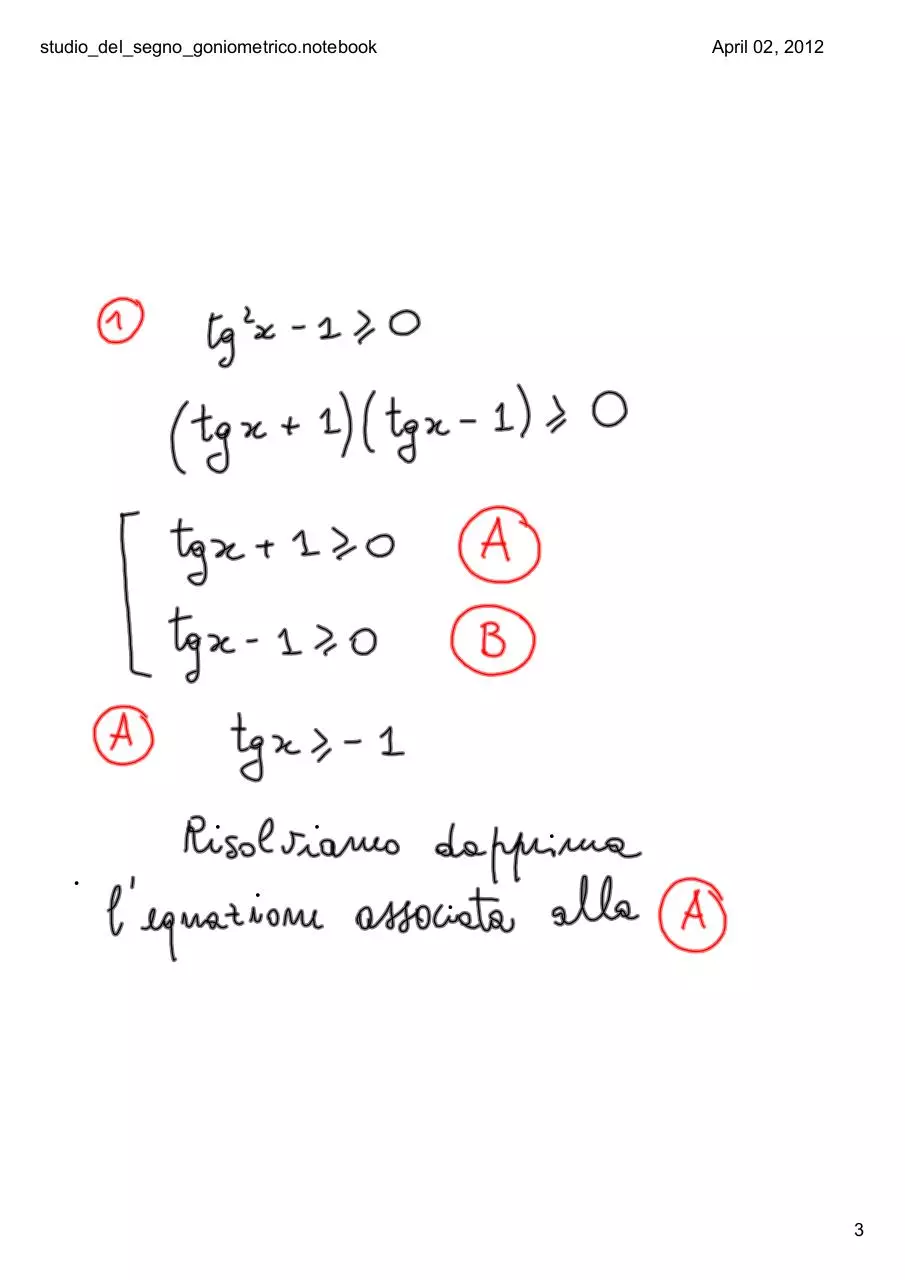 studio_del_segno_goniometrico.notebook April 02, 2012
1 tg²x - 1 ⩾ 0
(tgx + 1)(tgx - 1) ⩾ 0
tgx + 1 ⩾ 0 A
tgx - 1 ⩾ 0 B
A tgx ⩾ - 1
Risolviamo dapprima
l'equazione associata alla A
3